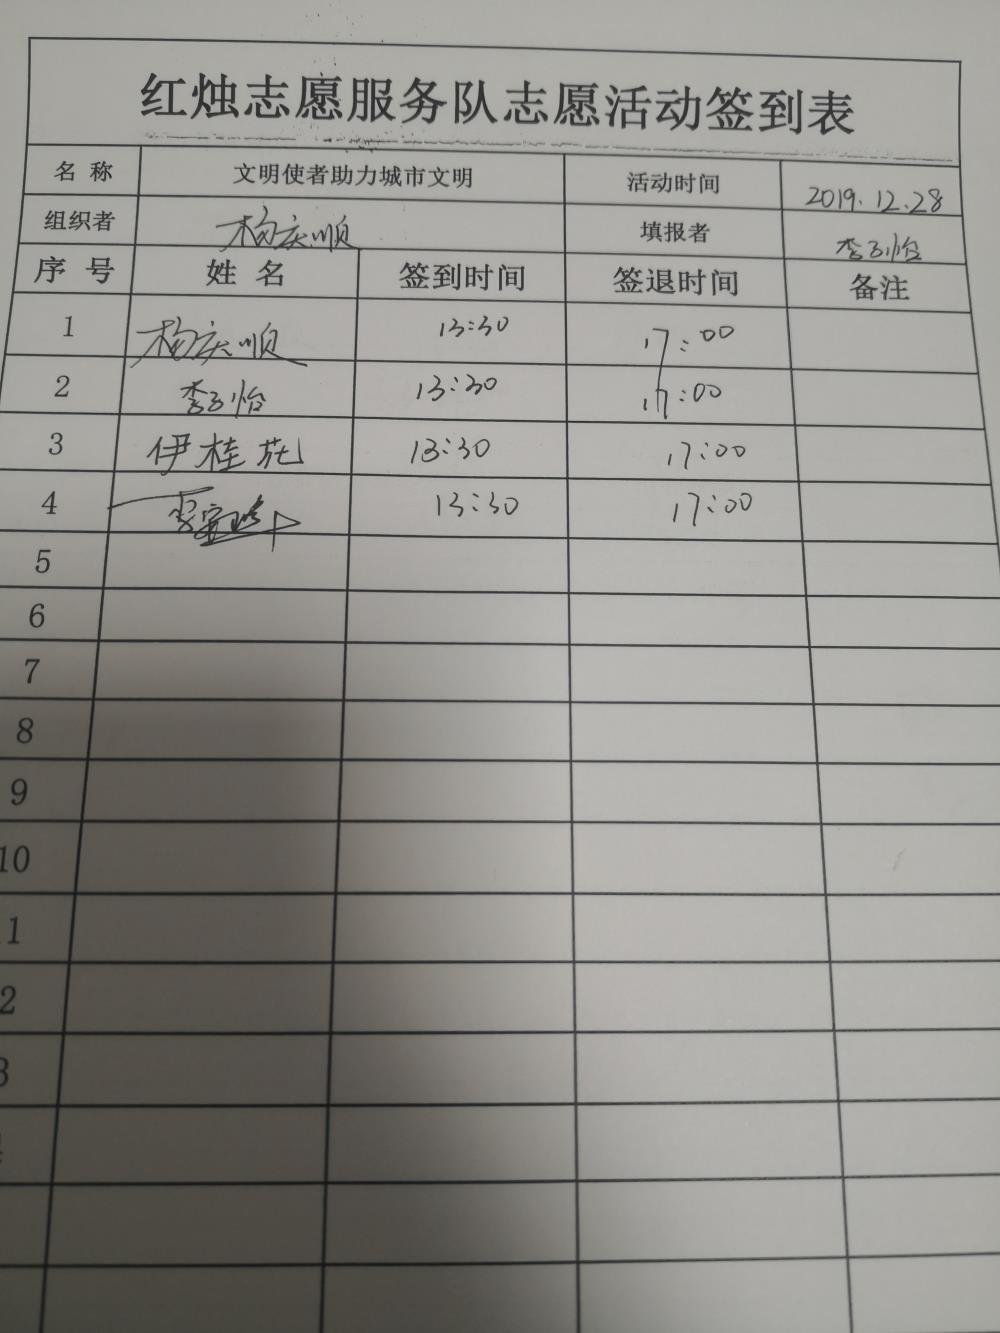 红烛志愿服务队志愿活动签到表
名 称 文明使者助力城市文明 活动时间 2019.12.28
组织者 杨庆顺 填报者 李子怡
序 号 姓 名 签到时间 签退时间 备注
1 杨庆顺 13:30 17:00
2 李子怡 13:30 17:00
3 伊桂芫 13:30 17:00
4 13:30 17:00
5
6
7
8
9
10
11
12
13